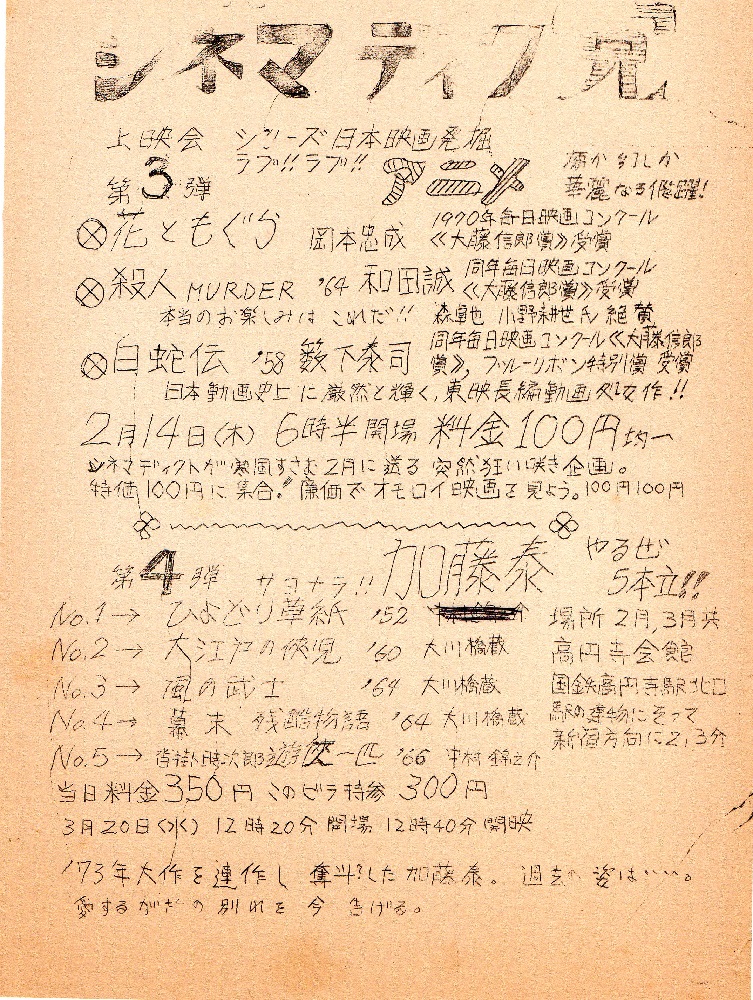 シネマティク
上映会 シリーズ日本映画発掘
ラブ!!ラブ!!
第3弾 アニメ
華麗なる飛躍!
花ともぐら 岡本忠成 1970年毎日映画コンクール
≪大藤信郎賞≫受賞
殺人 MURDER '64 和田誠 同年毎日映画コンクール
≪大藤信郎賞≫受賞
本当のお楽しみは これだ!! 森卓也 小野耕世氏 絶賛
白蛇伝 '58 籔下泰司 同年毎日映画コンクール≪大藤信郎
賞≫, ブルーリボン特別賞 受賞
日本動画史上に厳然と輝く,東映長編動画処女作!!
2月14日(木) 6時半開場 料金100円均一
シネマディクトが寒風すさむ2月に送る 突然狂い咲き企画。
特価100円に集合!! 廉価でオモロイ映画を見よう。100円100円
第4弾 サヨナラ!! 加藤泰 やるぜ
5本立!!
No.1→ ひよどり草紙 '52
No.2→ 大江戸の侠児 '60 大川橋蔵
No.3→ 風の武士 '64 大川橋蔵
No.4→ 幕末残酷物語 '64 大川橋蔵
No.5→ 沓掛時次郎遊侠一匹 '66 中村錦之介
場所 2月,3月共
高円寺会館
国鉄高円寺駅北口
駅の建物にそって
新宿方向に2,3分
当日料金350円 このビラ持参 300円
3月20日(水) 12時20分開場 12時40分開映
'73年大作を連作し 奮斗した加藤泰。 過去の姿は……。
別れを今 告げる。